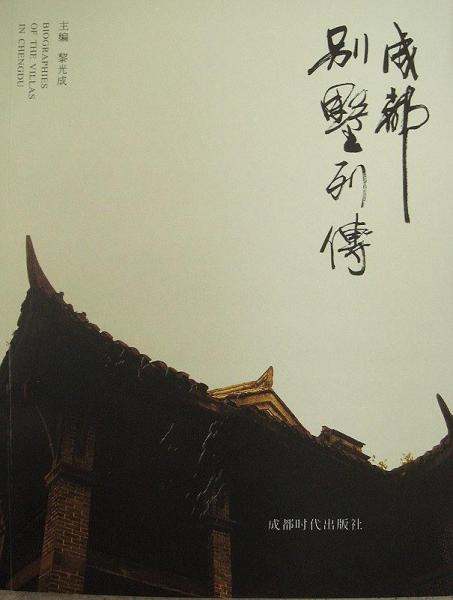 成都
别墅列傳
主编 黎光成
BIOGRAPHIES
OF THE VILLAS
IN CHENGDU
成都时代出版社